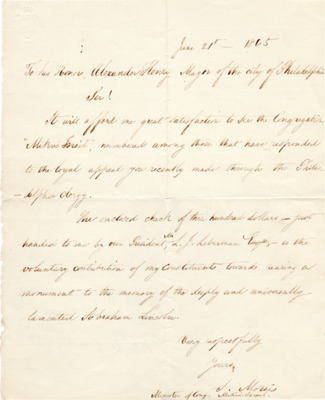 June 21st — 1865
To his Honor, Alexander Henry Mayor of the city of Philadelphia
Sir!
It will afford me great satisfaction to see the Congregation
"Mikve Israel", numbered among those that have responded
to the loyal appeal you recently made through the Phila-
-delphia clergy.
The enclosed check of two hundred dollars — just
handed to me by our President, Mr L. J. Leberman Esqre, — is the
voluntary contribution of my Constituents towards raising a
monument to the memory of the deeply and universally
lamented Abraham Lincoln.
Very respectfully
Yours,
S. Morais
Minister of Cong. Mikve Israel.